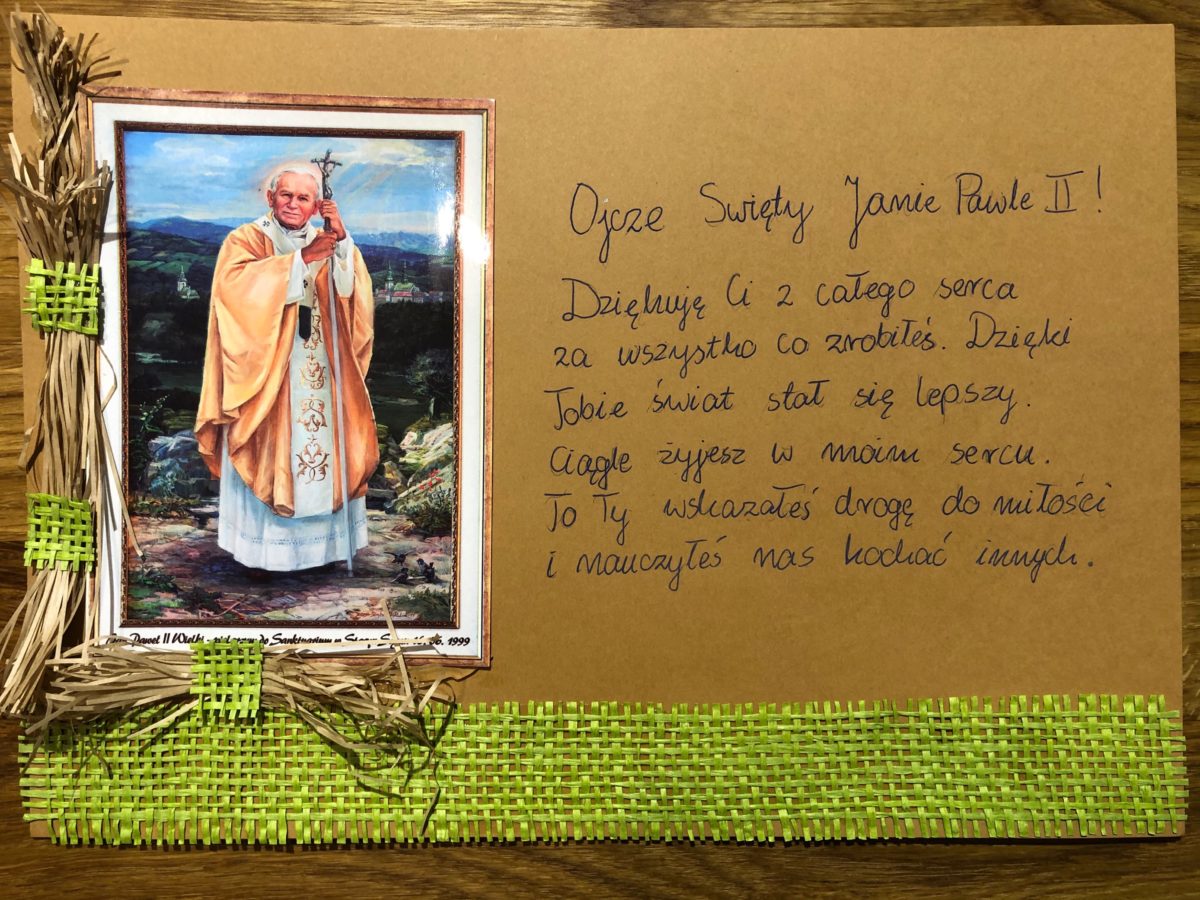 Ojcze Święty Janie Pawle II!
Dziękuję Ci z całego serca
za wszystko co zrobiłeś. Dzięki
Tobie świat stał się lepszy.
Ciągle żyjesz w moim sercu.
To Ty wskazałeś drogę do miłości
i nauczyłeś nas kochać innych.
Paweł II Wielki do Sanktuarium w 1999